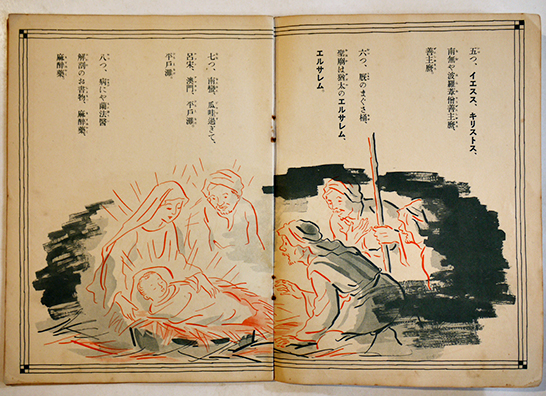 五つ、イエスス、キリストス、
南無や波羅葦僧善主麿、
善主麿。
六つ、厩のまぐさ桶、
聖廟は猶太のエルサレム、
エルサレム。
七つ、南蠻、瓜哇過ぎて、
呂宋、澳門、平戸灘、
平戸灘。
八つ、病にや蘭法醫
解剖のお書物、麻醉藥、
麻醉藥。